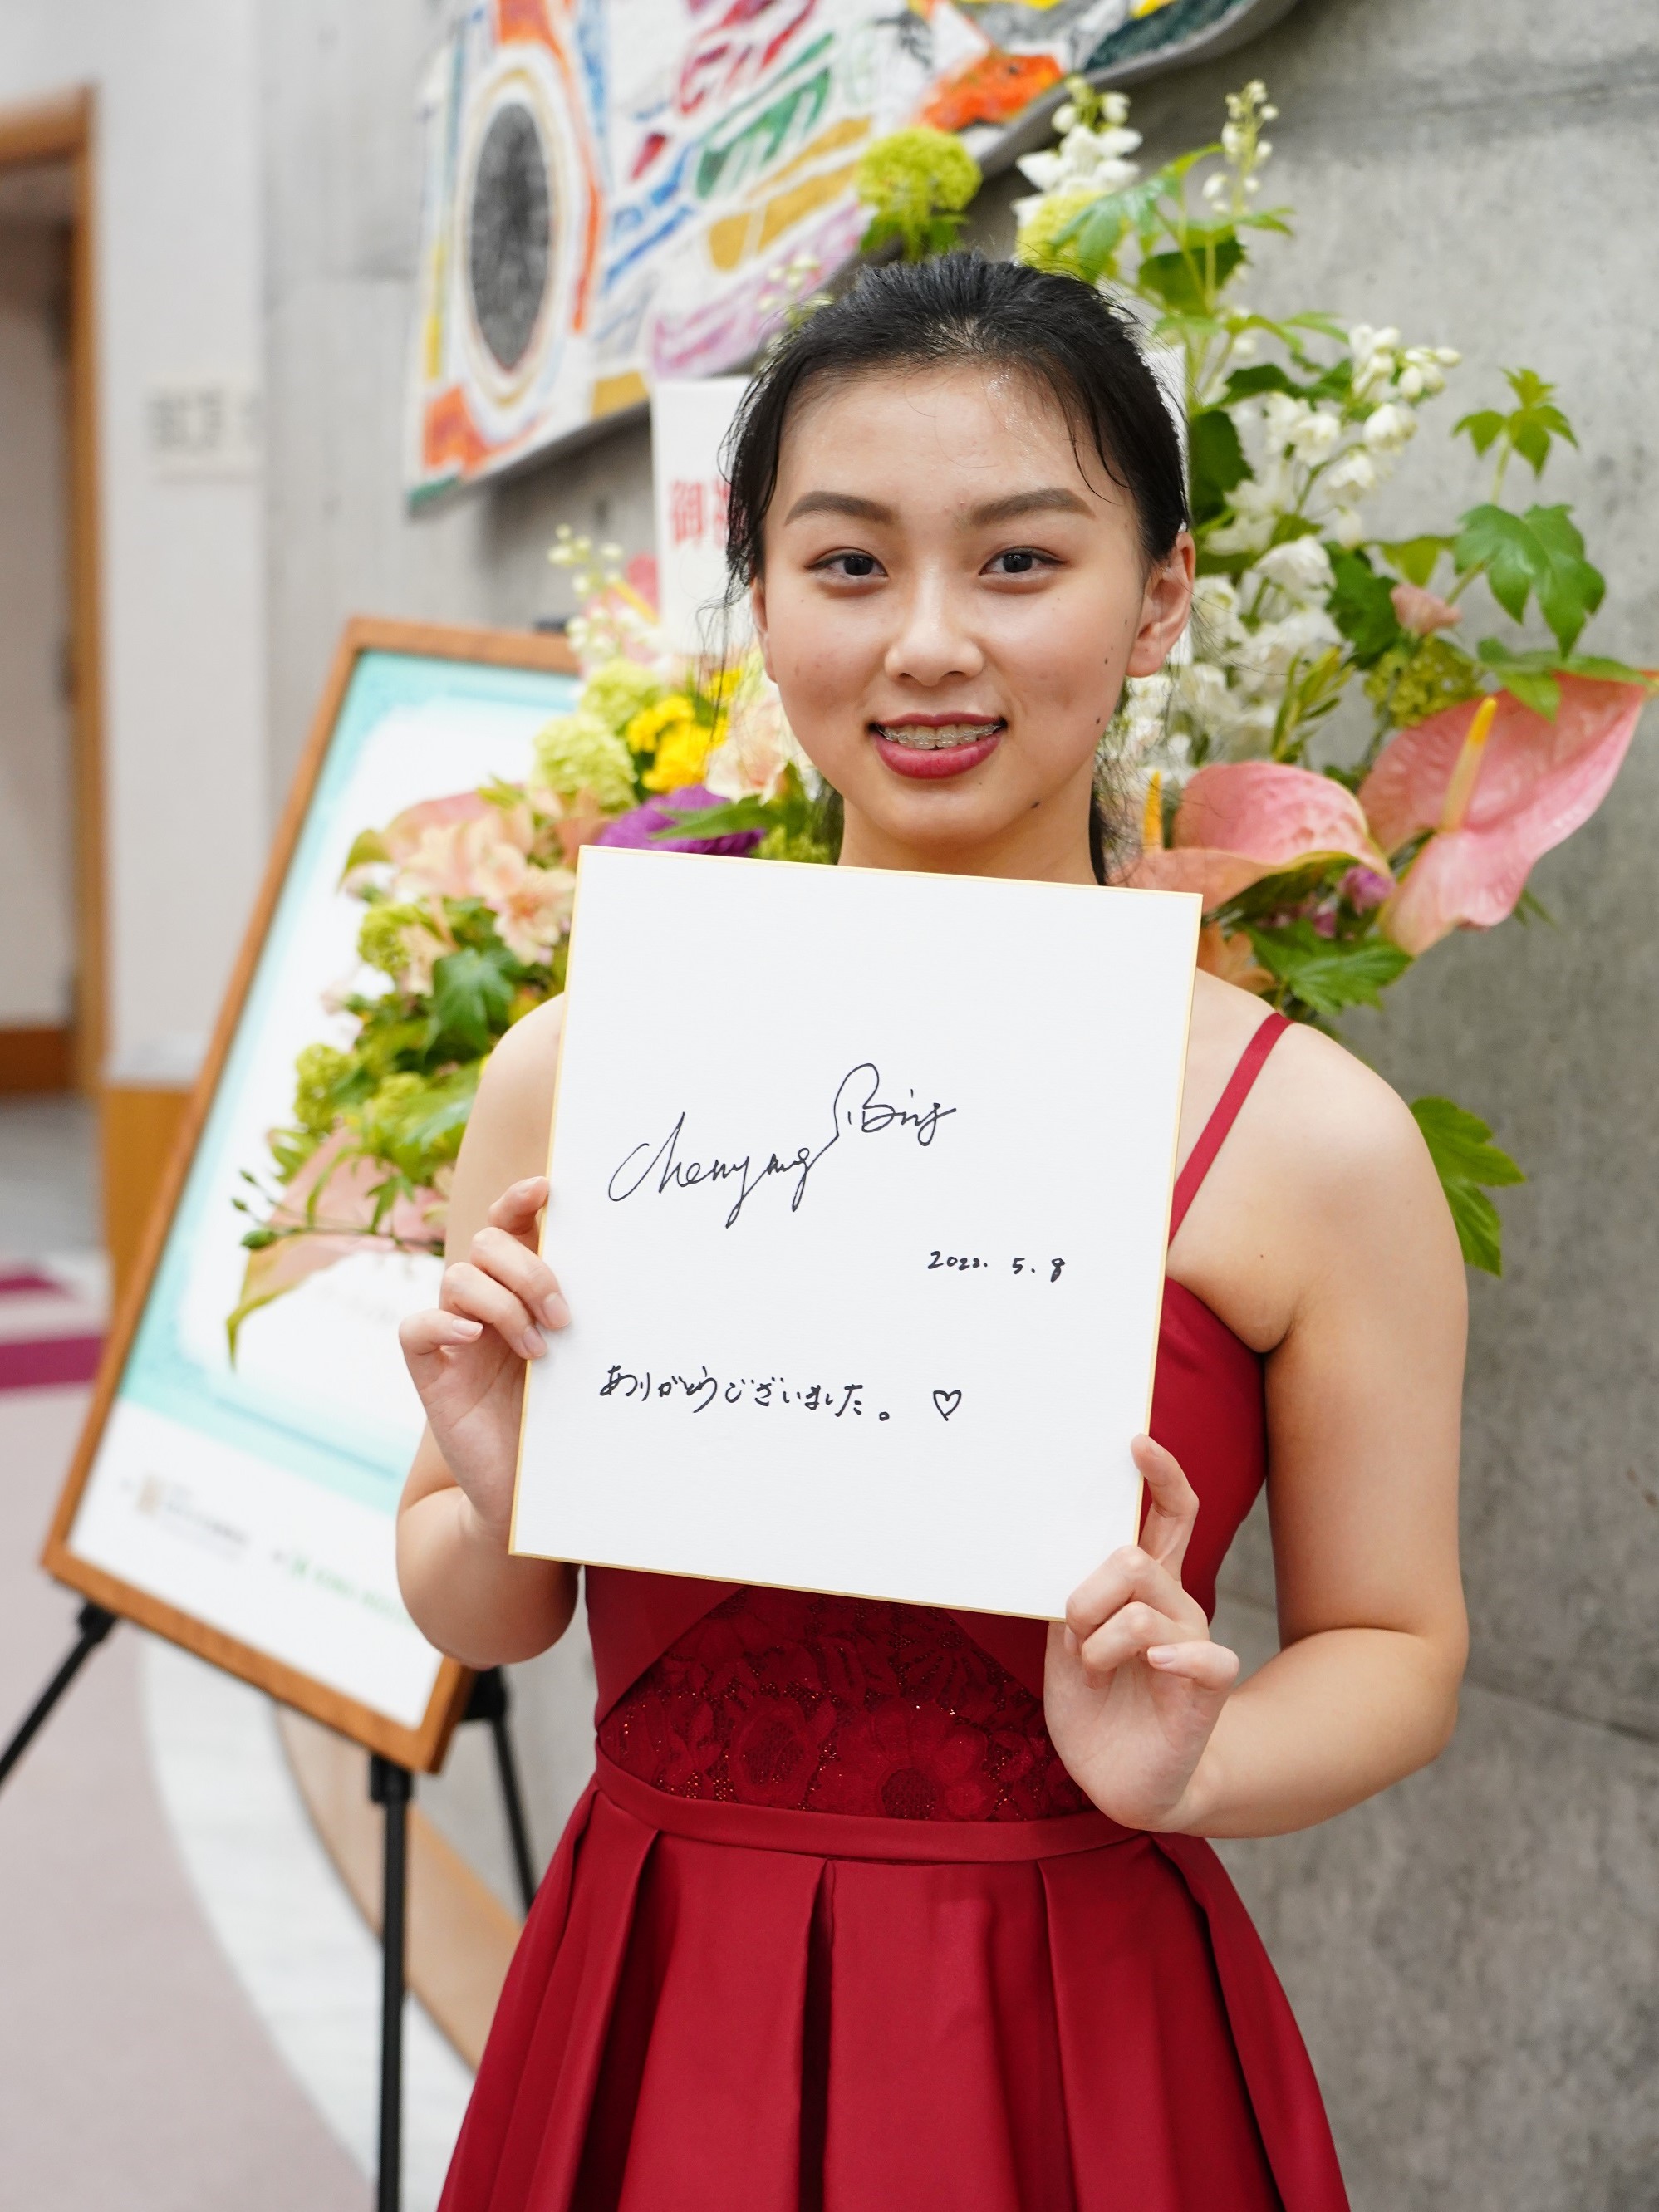 御祝
Chenyang Bing
2022. 5. 8
ありがとうございました。♡